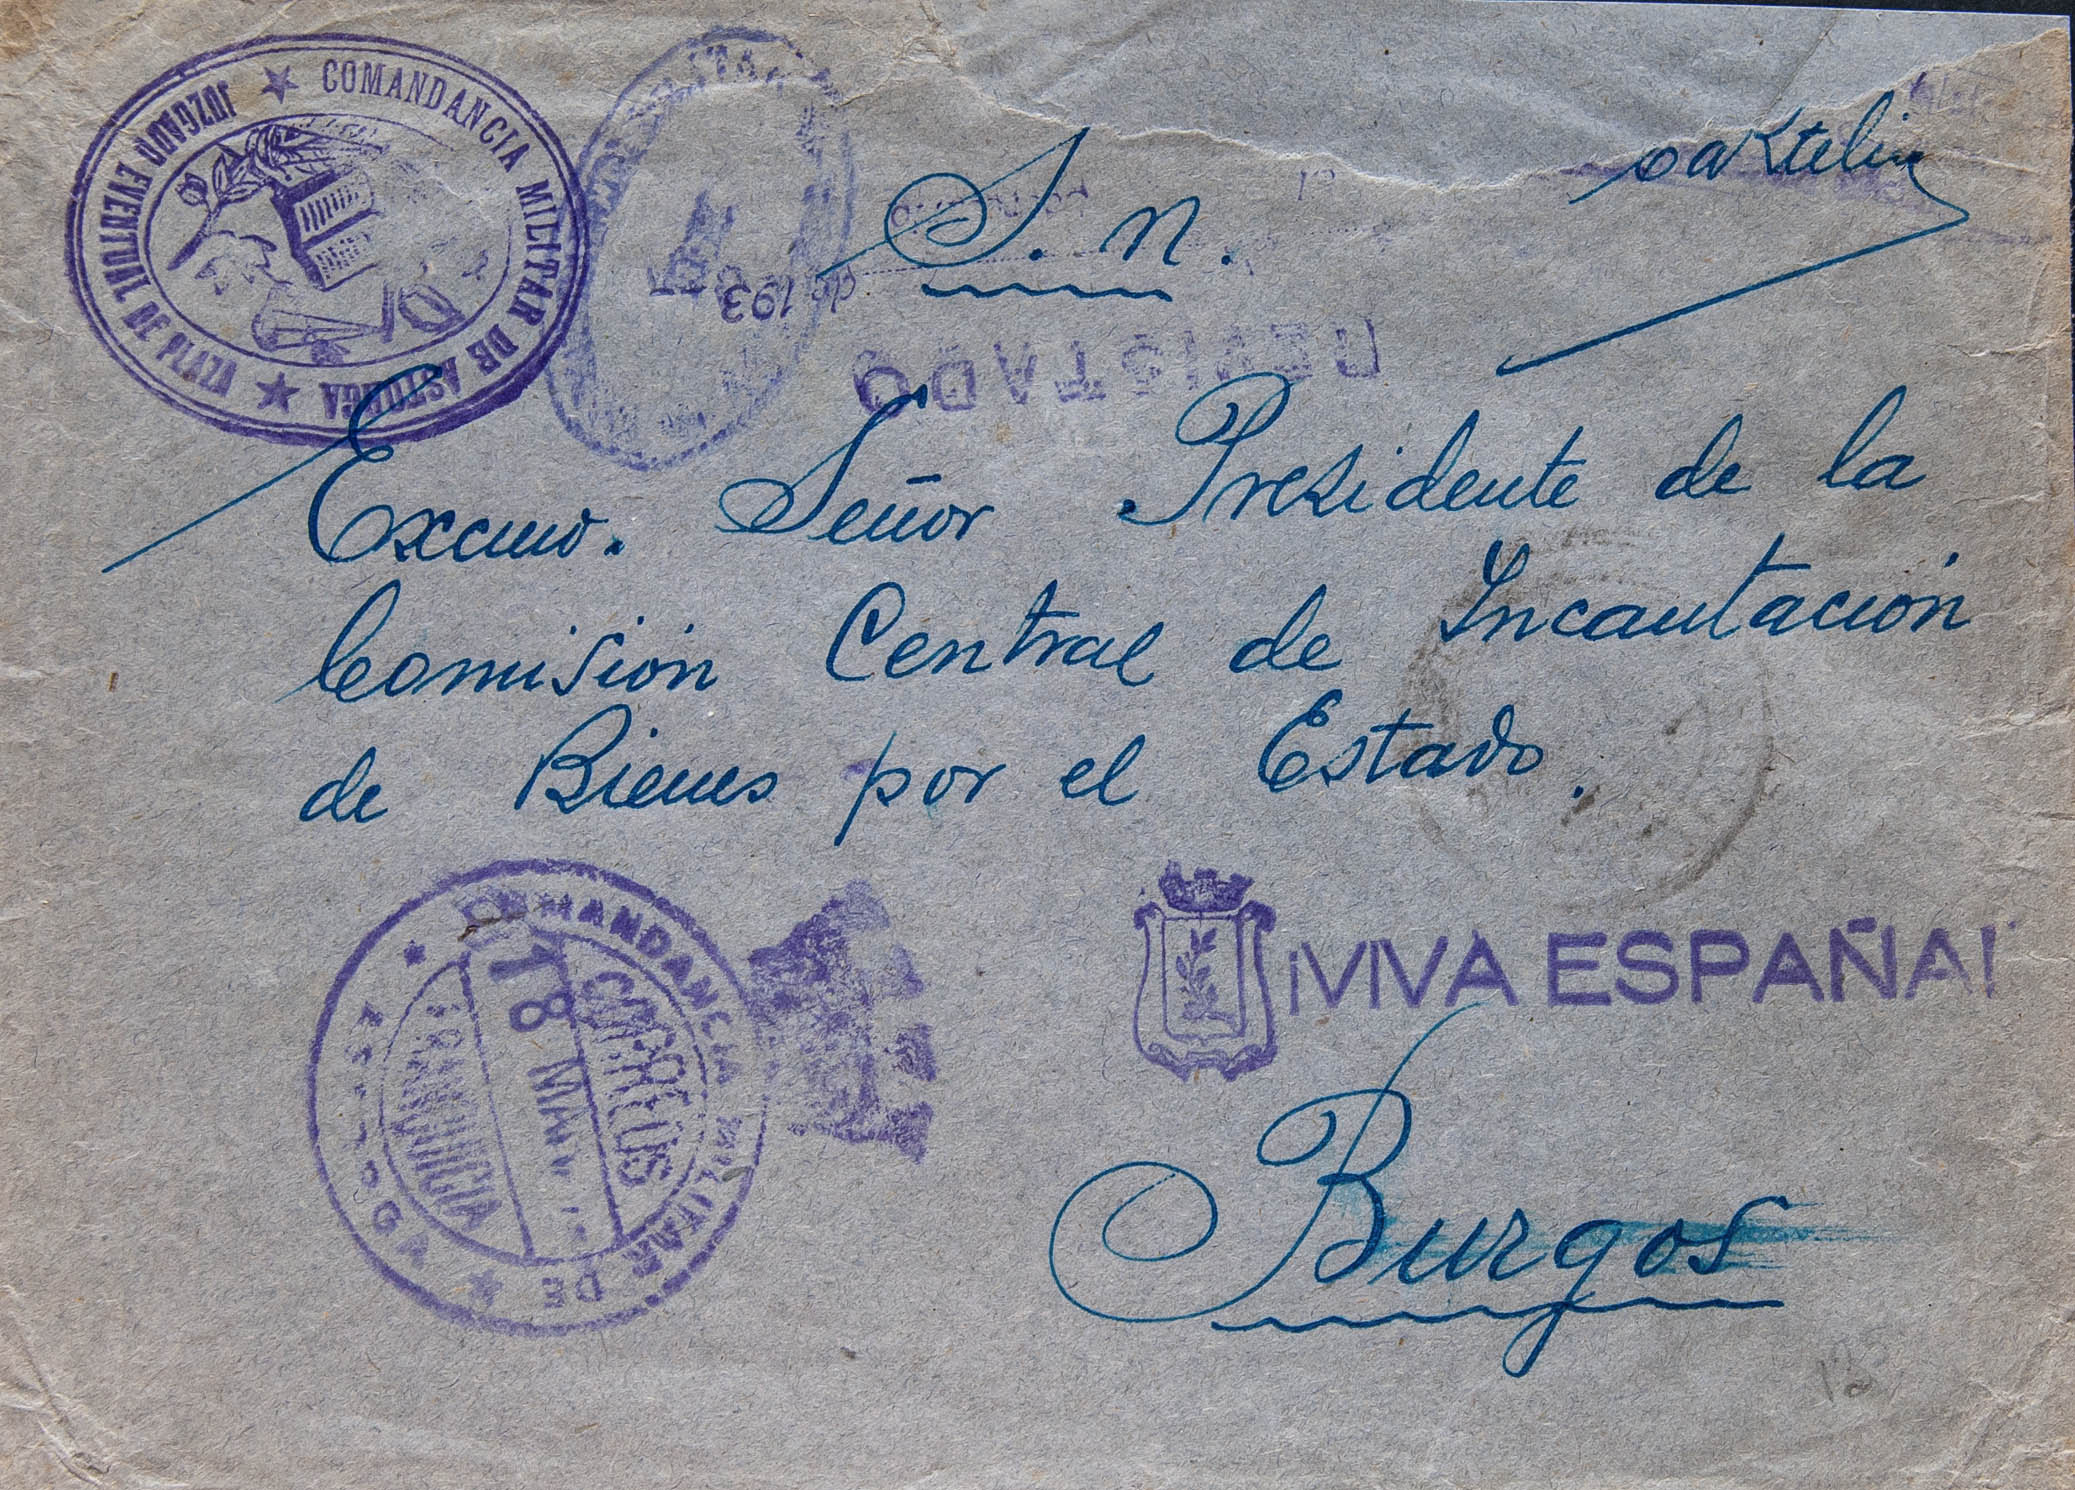 COMANDANCIA MILITAR DE ASTORGA
JUZGADO EVENTUAL DE PLAZA
S. N.
de 193
REVISTADO
Excmo. Señor Presidente de la
Comisión Central de Incautación
de Bienes por el Estado.
COMANDANCIA MILITAR DE ASTORGA
CORREOS
18 MAY
FRANQUICIA
¡VIVA ESPAÑA!
Burgos